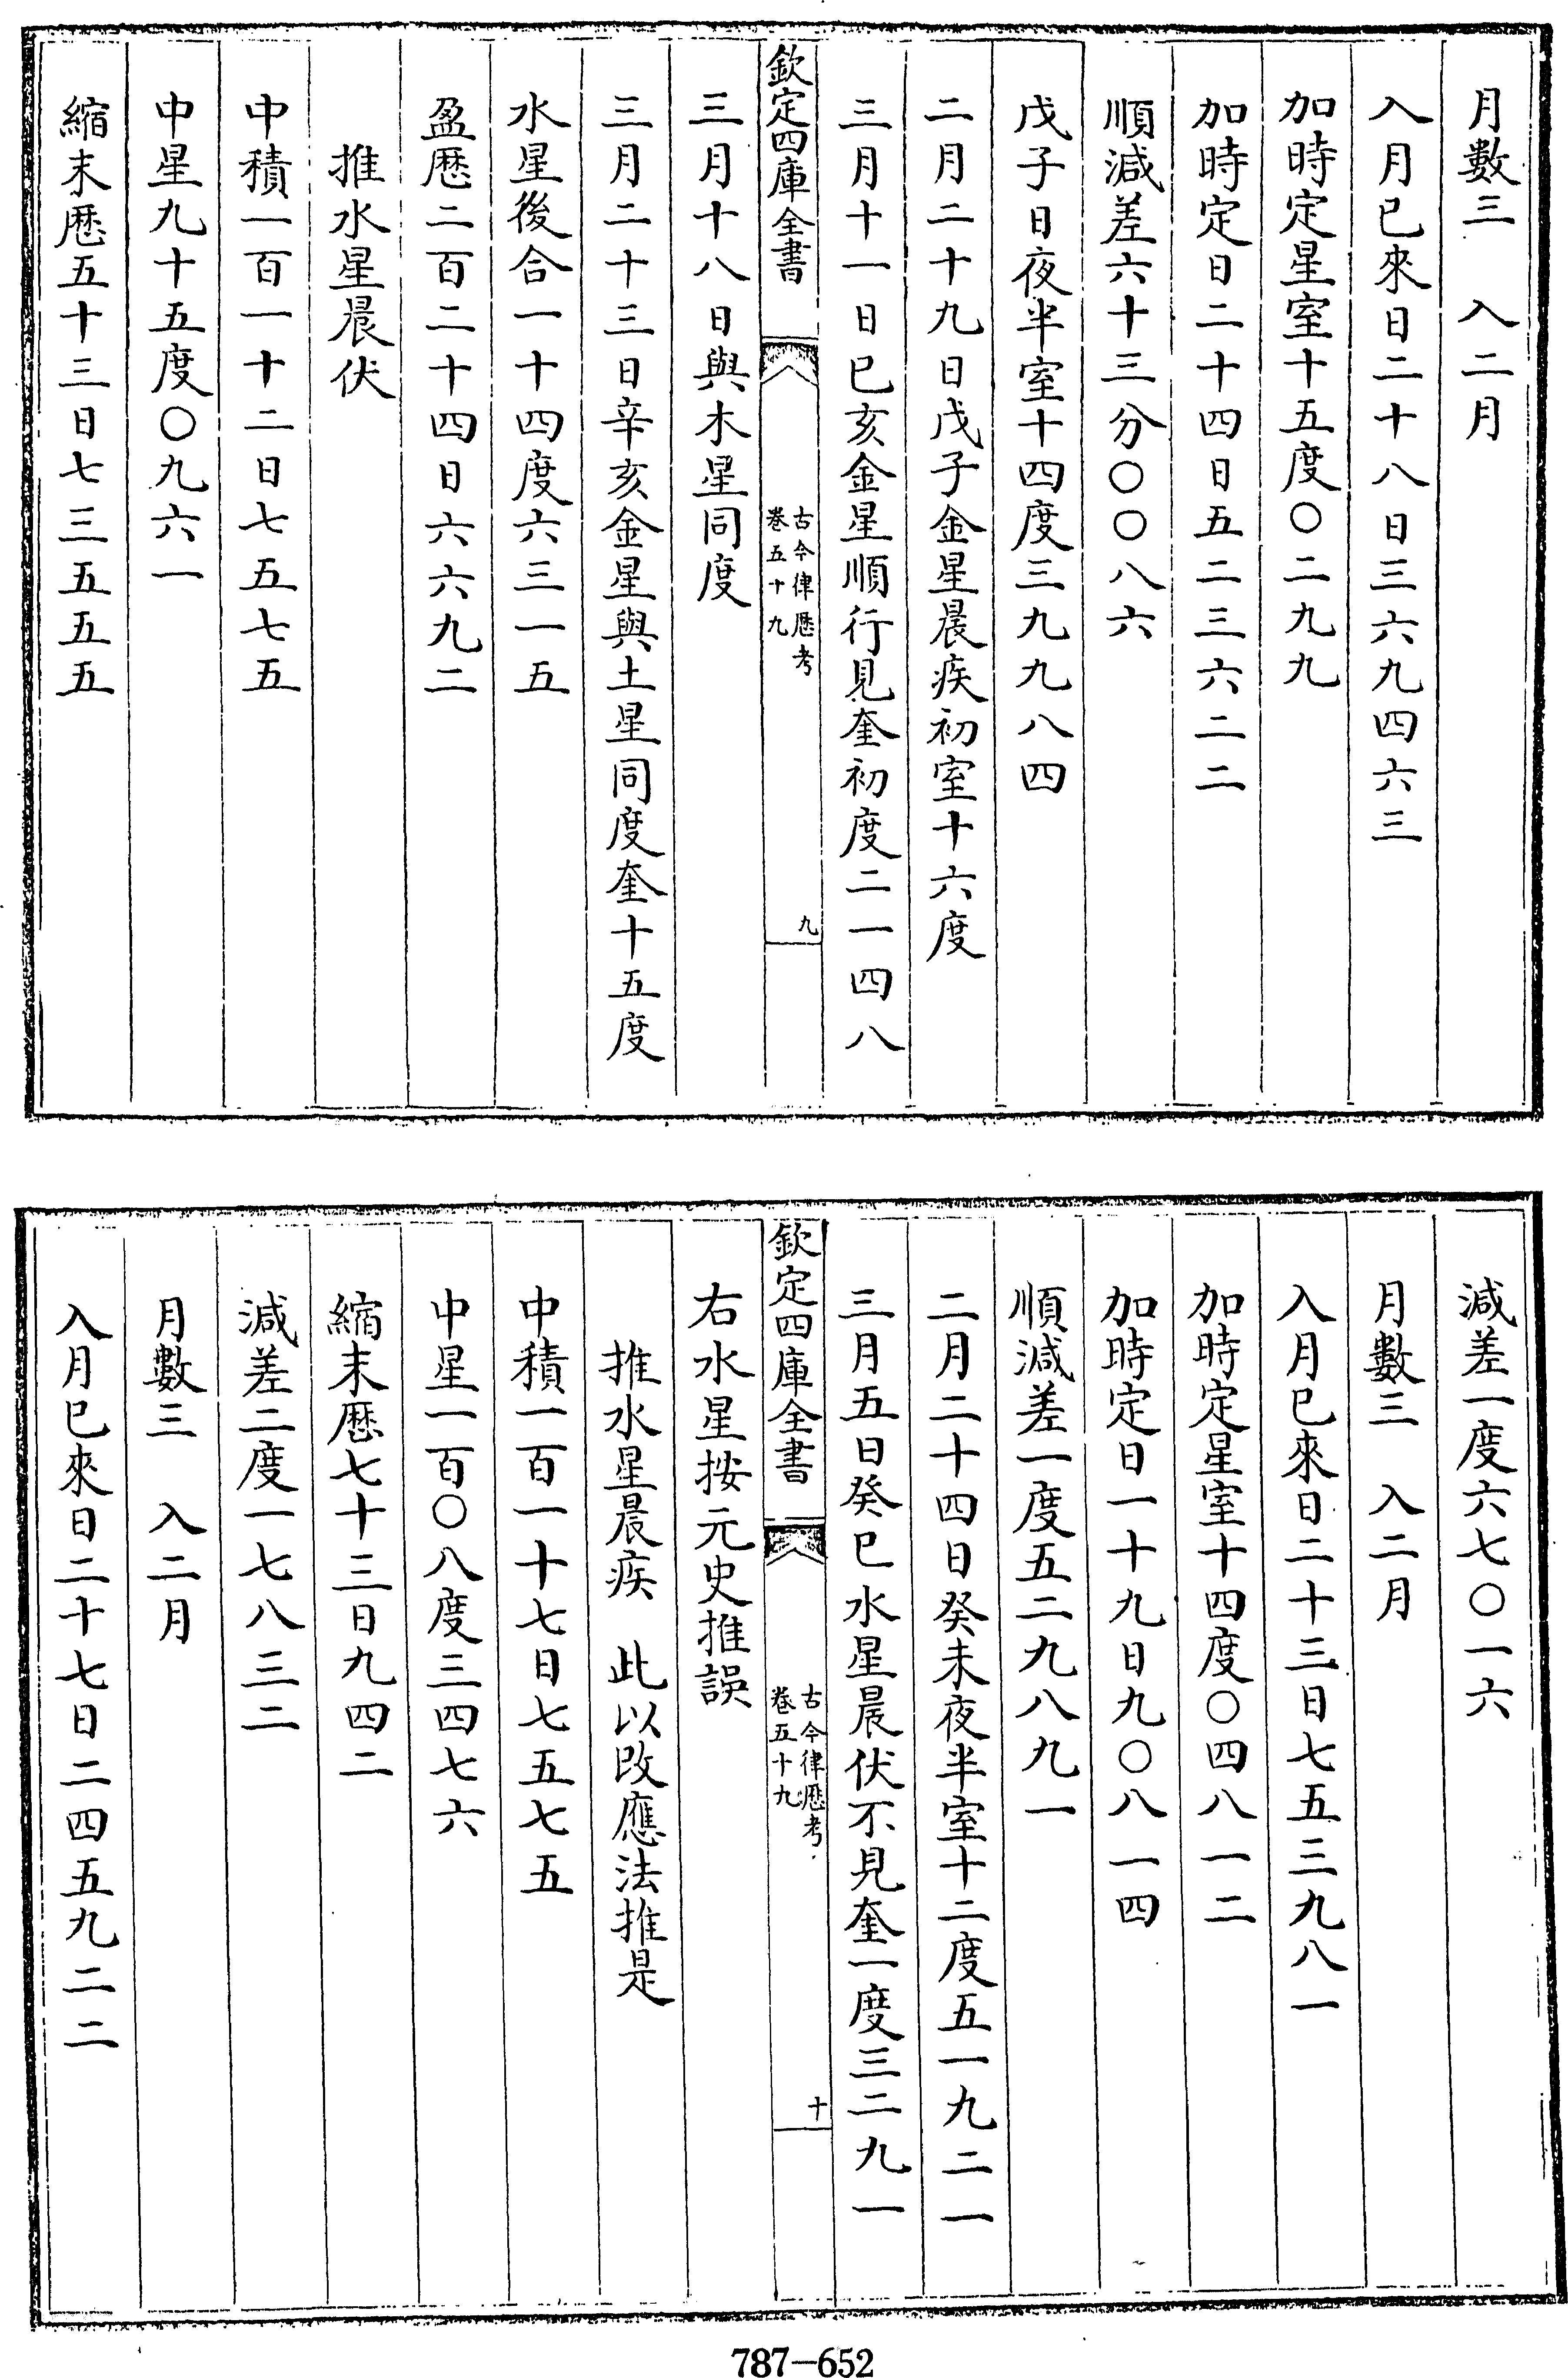 月數三　入二月
入月已來日二十八日三六九四六三
加時定星室十五度〇二九九
加時定日二十四日五二三六二二
順減差六十三分〇〇八六
戊子日夜半室十四度三九九八四
二月二十九日戊子金星晨疾初室十六度
三月十一日巳亥金星順行見奎初度二一四八
欽定四庫全書
古今律厯考
卷五十九
九
三月十八日與木星同度
三月二十三日辛亥金星與土星同度奎十五度
水星後合一十四度六三一五
盈厯二百二十四日六六九二
推水星晨伏
中積一百一十二日七五七五
中星九十五度〇九六一
縮末厯五十三日七三五五五
減差一度六七〇一六
月數三　入二月
入月巳來日二十三日七五三九八一
加時定星室十四度〇四八一二
加時定日一十九日九〇八一四
順減差一度五二九八九一
二月二十四日癸未夜半室十二度五一九二一
三月五日癸巳水星晨伏不見奎一度三二九一
欽定四庫全書
古今律厯考
卷五十九
十
右水星按元史推誤
推水星晨疾　此以改應法推是
中積一百一十七日七五七五
中星一百〇八度三四七六
縮末厯七十三日九四二
減差二度一七八三二
月數三　入二月
入月巳來日二十七日二四五九二二
787-652